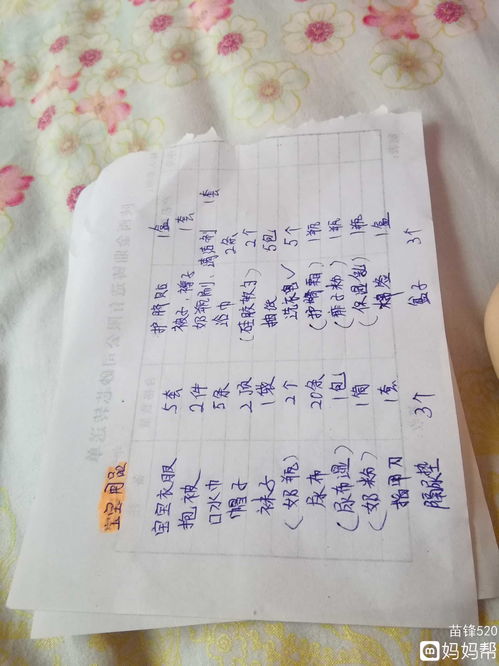 宝宝用品
宝宝衣服 5套 护脐贴 1盒
抱被 2件 被子，褥子 1套
口水巾 5条 奶瓶刷、清洁剂 1套
浴巾 2条
帽子 2顶 (硅胶软勺) 2个
袜子 1袋 抽纸 5包
(奶瓶) 2个 洗衣皂✓ 5个
尿布 20条 (护臀霜) 1瓶
(尿布湿) 1包 (痱子粉) 1瓶
(奶粉) 1筒 1瓶
指甲刀 1套 棉签 1盒
隔尿垫 3个 盆子 3个
苗锋520
妈妈帮